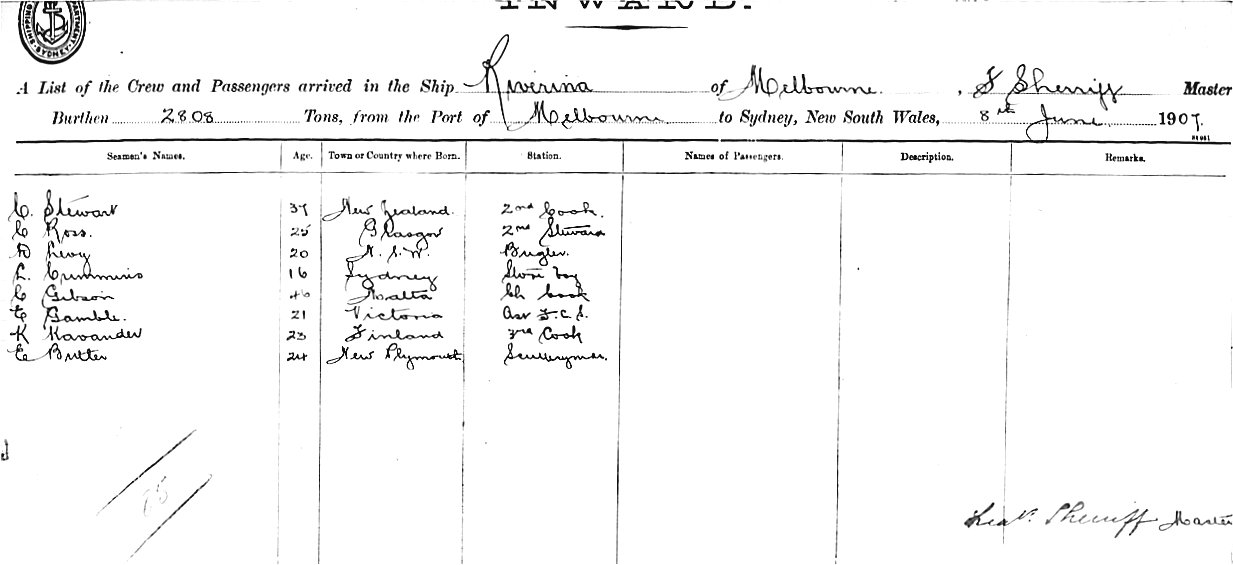 INWARD.
SHIPPING DEPARTMENT SYDNEY
A List of the Crew and Passengers arrived in the Ship Riverina of Melbourne, F Sherriff Master
Burthen 2808 Tons, from the Port of Melbourne to Sydney, New South Wales, 8th June 1907.
Seamen's Names. Age. Town or Country where Born. Station. Names of Passengers. Description. Remarks.
C. Stewart 37 New Zealand. 2nd Cook.
C Ross. 25 Glasgow 2nd Steward
D Levy 20 N.S.W. Bugler.
L. Cummins 16 Sydney Store boy
C Gibson 46 Malta Ch Cook
E Gamble. 21 Victoria Ass F.C.S.
K Kavander 23 Finland 3rd Cook
E Butler 24 New Plymouth Sculleryman.
78
Sherriff Master